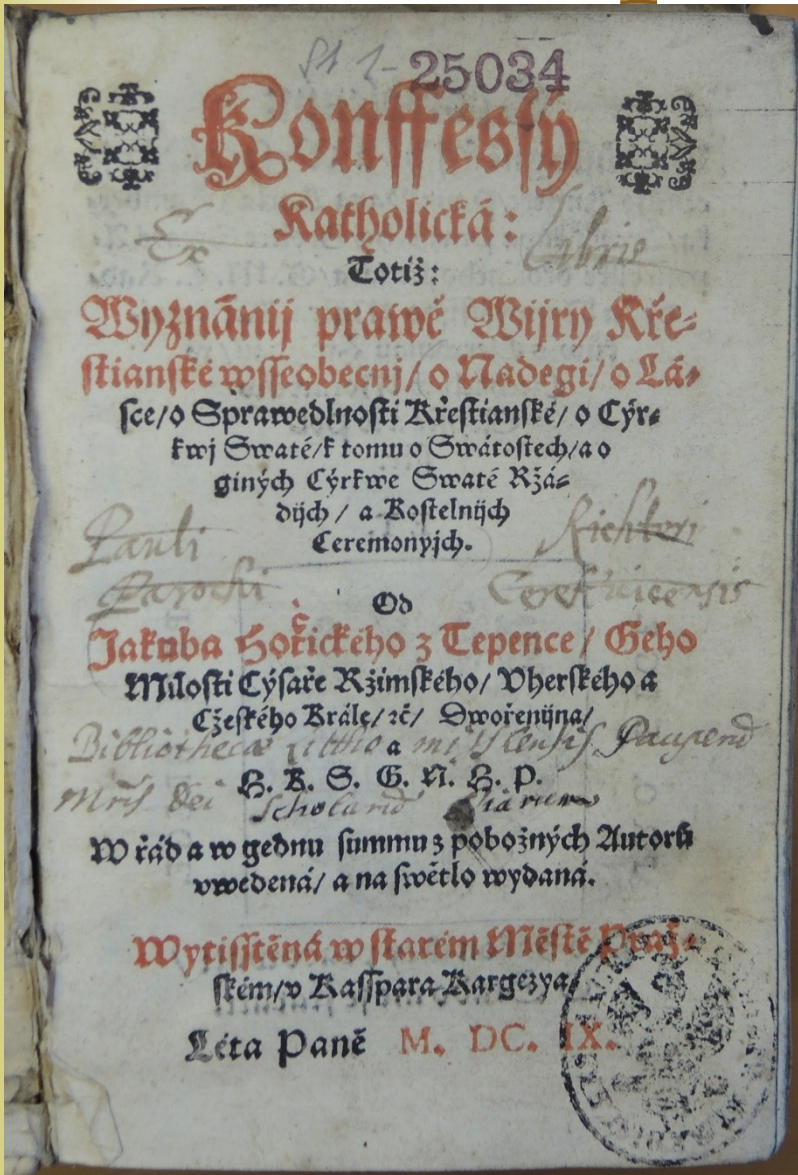 St 1-
25034
Konffessý
Katholická:
Ex Libris
Totiž:
Wyznánij prawé Wijry Kře-
stianské wsseobecnj/ o Nadegi/ o Lá-
sce/ o Sprawedlnosti Křestianské/ o Cýr-
kwj Swaté/ k tomu o Swátostech/ a o
giných Cýrkwe Swaté Ržá-
dijch/ a Kostelnijch
Ceremonyjch.
Pauli Richteri
Parochi
Od
Jakuba Hořčického z Tepence/ Geho
Milosti Cýsaře Ržimského/ Vherského a
Cžeského Krále/ ꝛč/ Dwořenijna/
Bibliothecae
a
H. K. S. G. N. H. P.
Mris Dei Scholarum Piarum
W řád a w gednu summu z pobožných Autorů
vwedená/ a na swětlo wydaná.
Wytisstěná w starém Městě Praž-
ském/ v Kasspara Kargezya/
Léta Paně M. DC. IX.